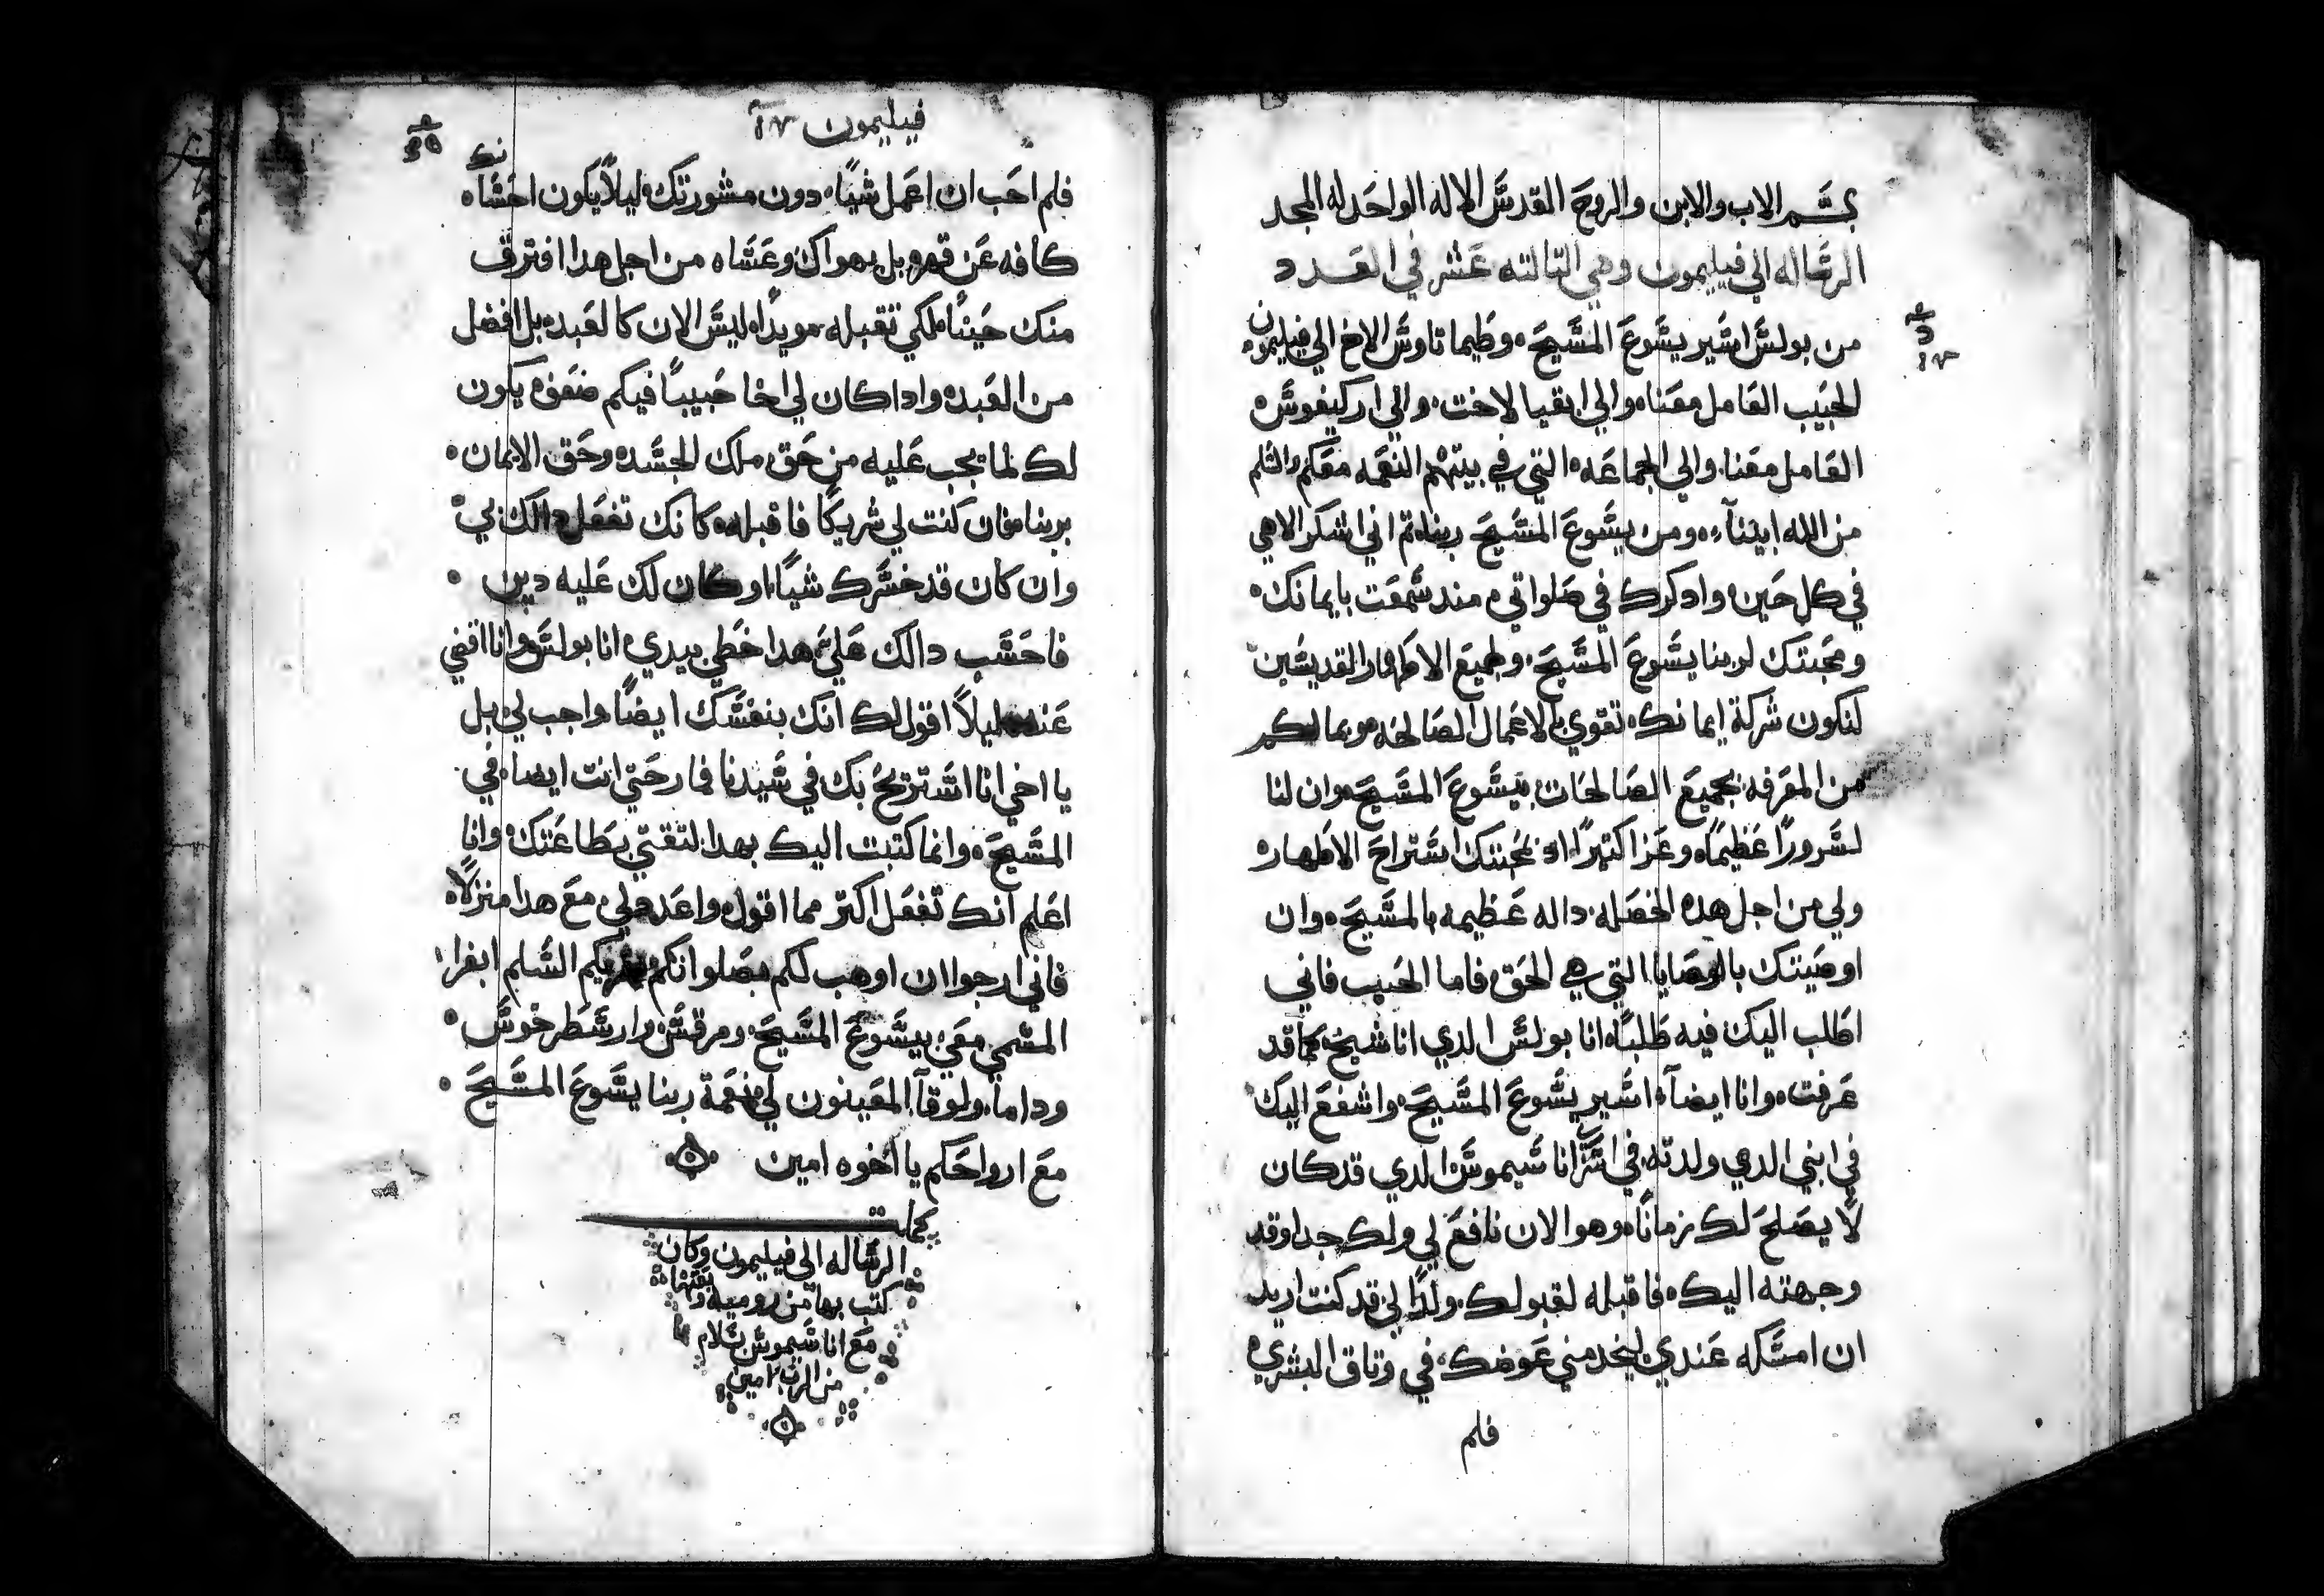 بسم الاب والابن والروح القدس الاله الواحد له المجد
الرساله الي فيليمون وهي التالته عشر في العدد
من بولس اسير يسوع المسيح وطيماتاوس الاخ الي فيليمون
الحبيب العامل معنا والي ابقيا الاخت والي اركيفوس
العامل معنا والي الجماعه التي في بيتهم النعمه معكم والسلم
من الله ابينا ومن يسوع المسيح ربنا تم اني اشكر الاهي
في كل حين وادكرك في صلواتي مند سمعت بايمانك
ومحبتك لربنا يسوع المسيح وجميع الاطهار القديسين
لتكون شركة ايمانك تقوي بالاعمال الصالحه وبمالكم
من المعرفه بجميع الصالحات بيسوع المسيح وان لنا
لسرورا عظيما وعزا كتيرا اد بمحبتك استراح الاطهار
ولي من اجل هده الخصله داله عظيمه بالمسيح وان
اوصيتك بالوصايا التي هي الحق فاما الحبيب فاني
اطلب اليك فيه طلبا انا بولس الدي انا شيخ كما قد
عرفت وانا ايضا اسير يسوع المسيح واشفع اليك
في ابني الدي ولدته في اسري اناسيموس الدي قد كان
لا يصلح لك زمانا وهو الان نافع لي ولك جدا وقد
وجهته اليك فاقبله لقبولك ولدا لي قد كنت اريد
ان امسكه عندي ليخدمني عوضك في وتاق البشري
فلم
فيليمون ١٣
فلم احب ان اعمل شيا دون مشورتك ليلا يكون احسانك
كافه عن قهر بل بهواك وعساه من اجل هدا افترق
منك حينا لكي تقبله مويدا ليس الان كالعبد بل افضل
من العبد وادا كان لي اخا حبيبا فيكم يكون
لك لما يجب عليه من حق ملك الجسد وحق الايمان
بربنا فان كنت لي شريكا فاقبله كانك تفعل دالك بي
وان كان قد خسرك شيا او كان لك عليه دين
فاحسب دالك علي هدا خطي بيدي انا بولس وانا اقضي
عنه ليلا اقول لك انك بنفسك ايضا واجب لي بل
يا اخي انا استريح بك في سيدنا فارحني انت ايضا في
المسيح وانما كتبت اليك بهدا لتقتي بطاعتك وانا
اعلم انك تفعل اكتر مما اقول واعدد لي مع هدا منزلا
فاني ارجوا ان اوهب لكم بصلواتكم يقريكم السلم ابفرا
المسمي معي بيسوع المسيح ومرقس وارسطرخوس
وداما ولوقا المعينون لي نعمة ربنا يسوع المسيح
مع ارواحكم يا اخوه امين
كملت
الرساله الي فيليمون وكان
كتب بها من روميه وبعتها
مع اناسيموس بسلام
من الرب امين